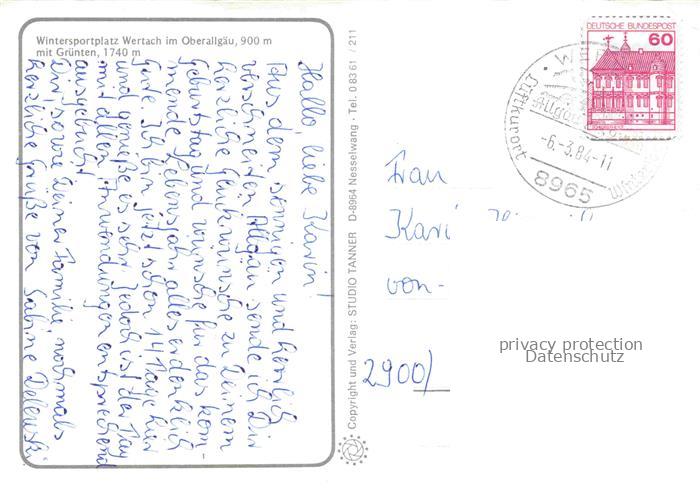 Wintersportplatz Wertach im Oberallgäu, 900 m
mit Grünten, 1740 m
Hallo, liebe Karin!
Aus dem sonnigen und herrlich
verschneiten Allgäu sende ich Dir
herzliche Glückwünsche zu Deinem
Geburtstag und wünsche für das kom-
mende Lebensjahr alles erdenklich
Gute. Ich bin jetzt schon 14 Tage hier
und genieße es sehr. Jedoch ist der Tag
mit allen Anwendungen entsprechend
ausgebucht.
Dir, sowie Deiner Familie, nochmals
herzliche Grüße von Sabine
Copyright und Verlag: STUDIO TANNER D-8964 Nesselwang · Tel. 0 83 61 / 211
DEUTSCHE BUNDESPOST
60
Luftkurort
Allgäu
-6.-3.84-11
8965
Frau
Kari
von-
2900/
privacy protection
Datenschutz